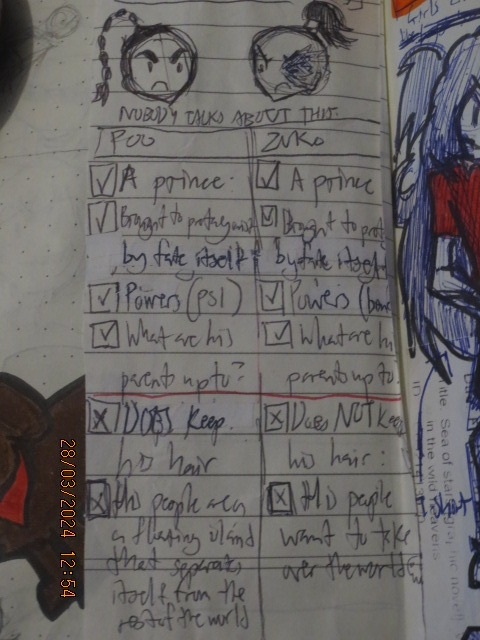 NOBODY TALKS ABOUT THIS.
POO
ZUKO
A prince.
A prince
Brought to protagonist
Brought to prot
by fate itself
by fate itself
Powers (PSI)
Powers (ben
What are his
What are hi
parents up to?
parents up to.
DOES keep
Does NOT keep
his hair
his hair:
his people are
his people
a floating island
want to take
that separates
over the world
itself from the
rest of the world
28/03/2024 12:54
in the wild heavens